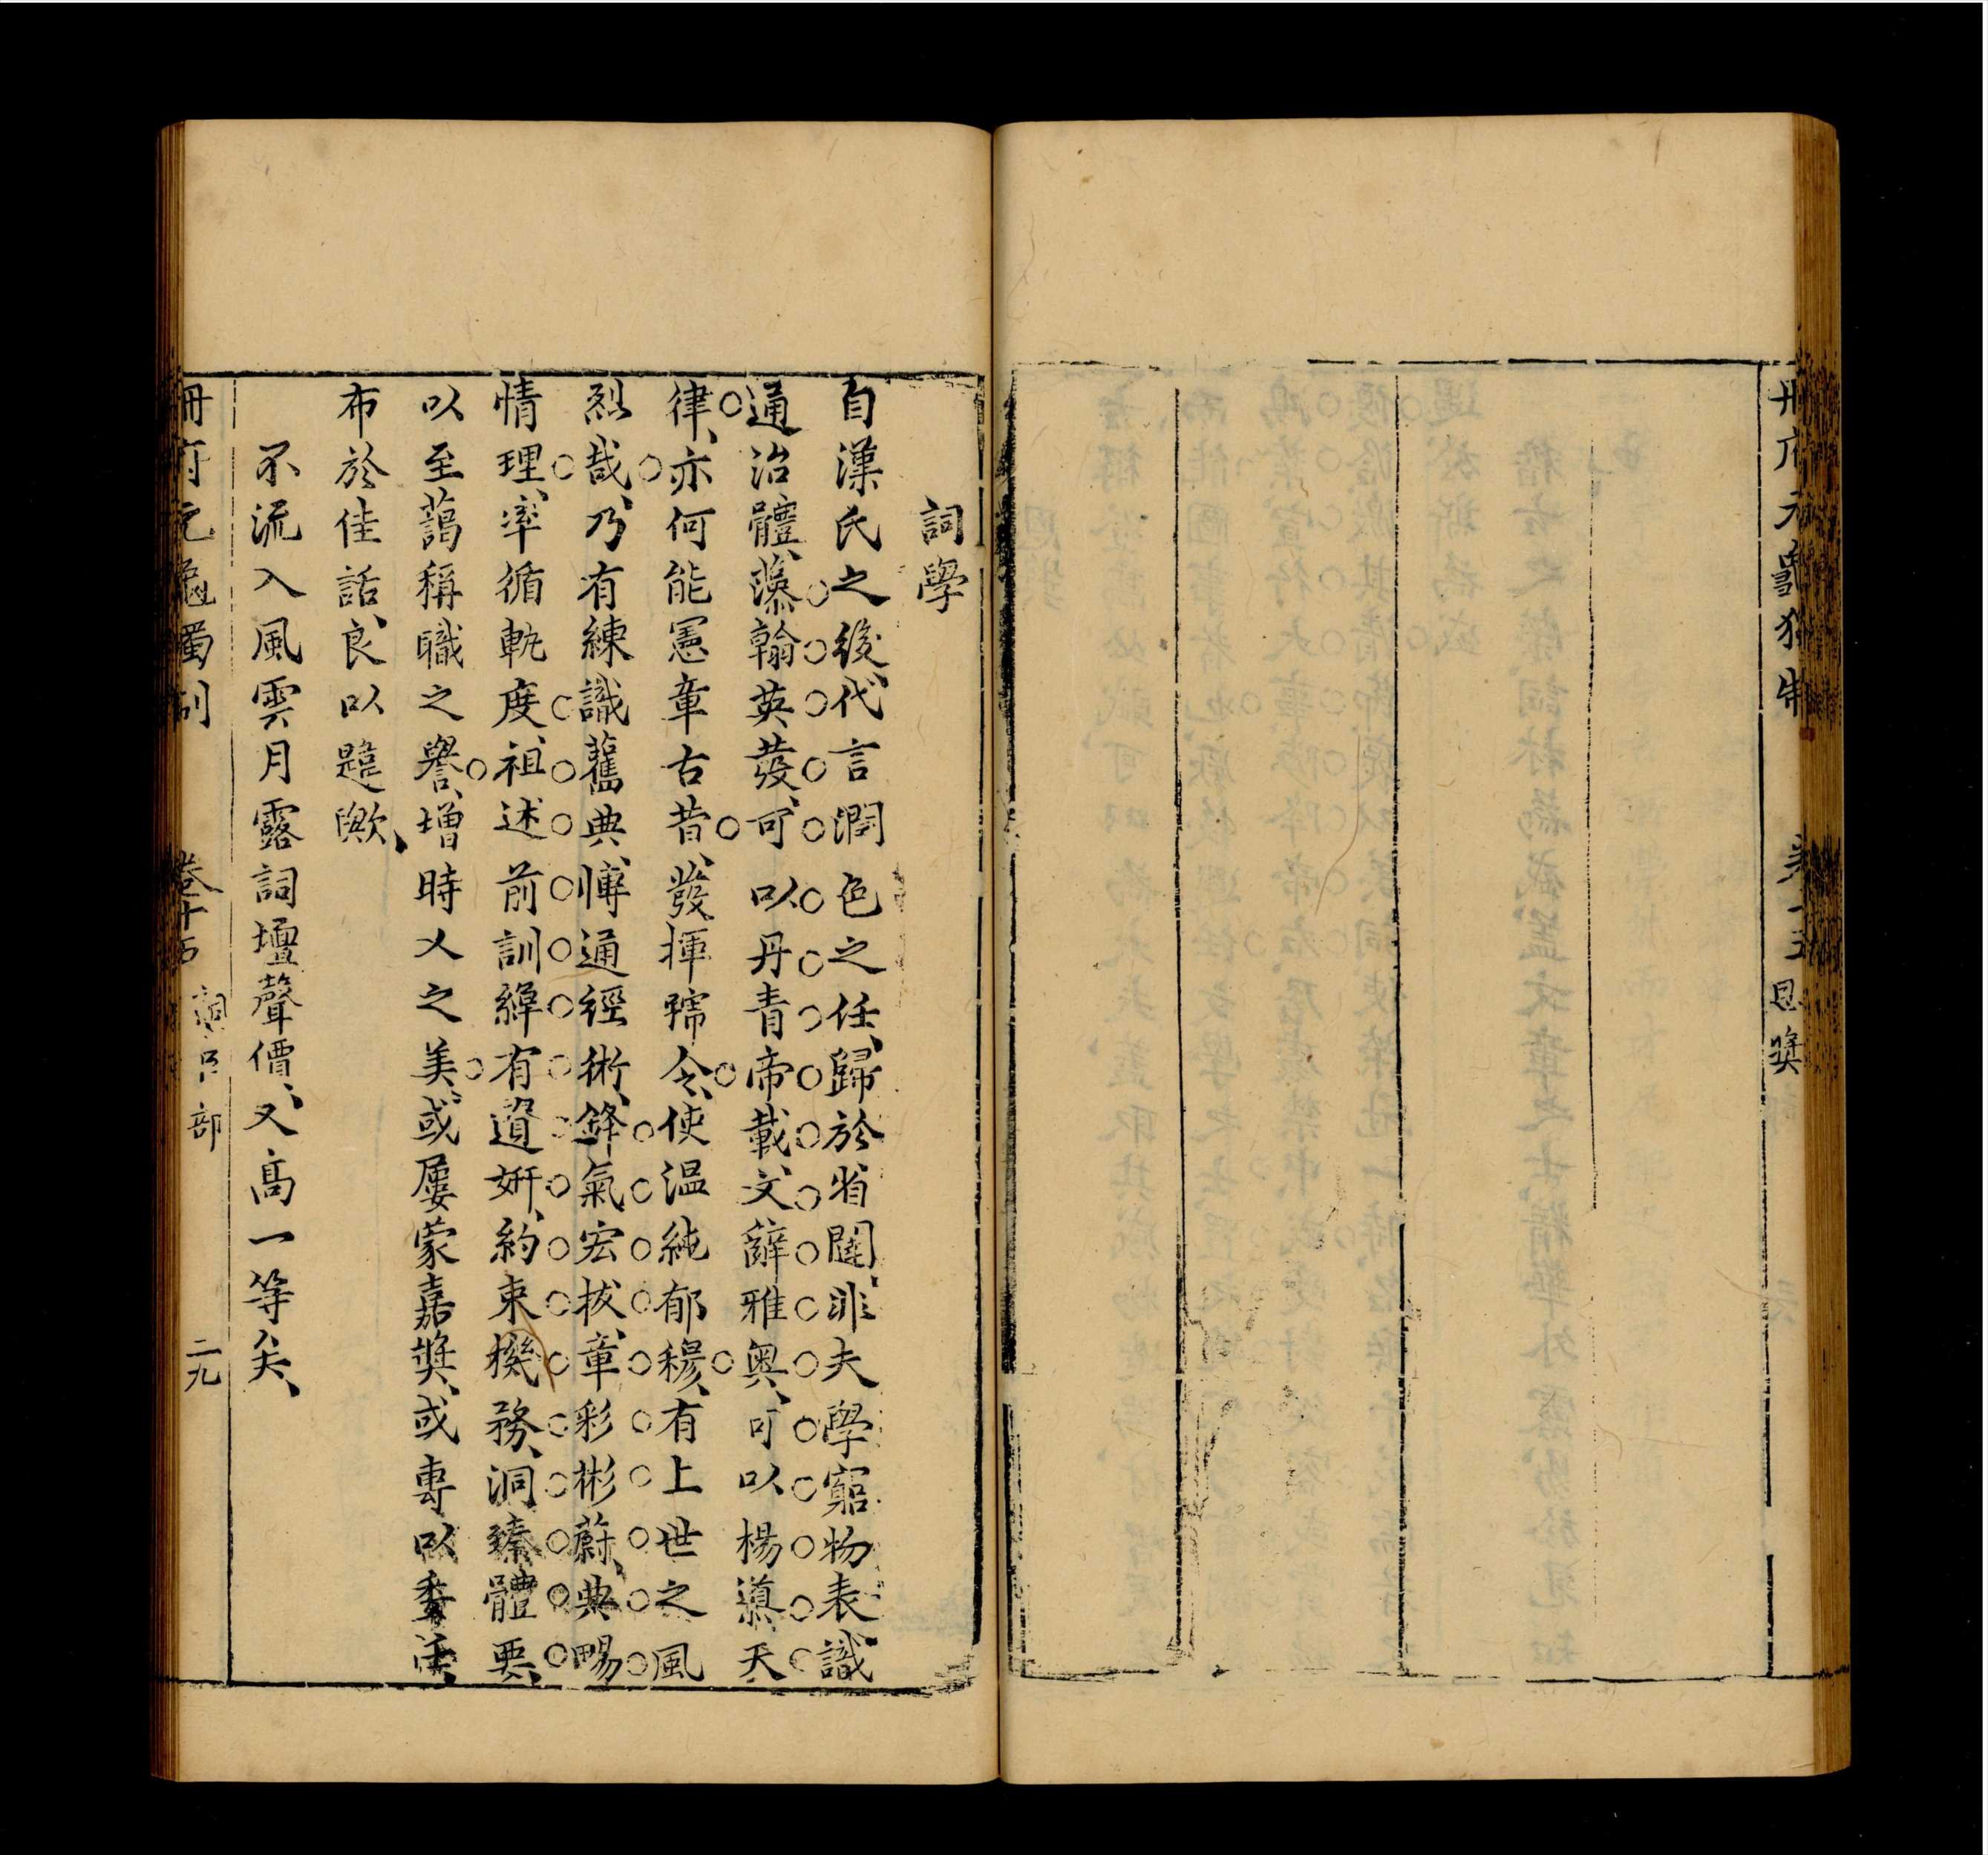 冊府元龜獨制
卷十五
恩獎
詞學
自漢氏之後、代言潤色之任、歸於省闥、非夫學窮物表、識
通治體、藻翰英發、可以丹青帝載、文辭雅奧、可以揚蕤天
律、亦何能憲章古昔、發揮號令、使温純郁穆、有上世之風
烈哉、乃有練識舊典、慱通經術、鋒氣宏拔、章彩彬蔚、典暢
情理、率循軌度、祖述前訓、綽有遒妍、約束機務、洞臻體要、
以至藹稱職之譽、増時乂之美、或屢蒙嘉奬、或專以委任、
布於佳話、良以韙歟、
不流入風雲月露詞壇聲價、又高一等矣、
冊府元龜獨制
卷十五
詞臣部
二九